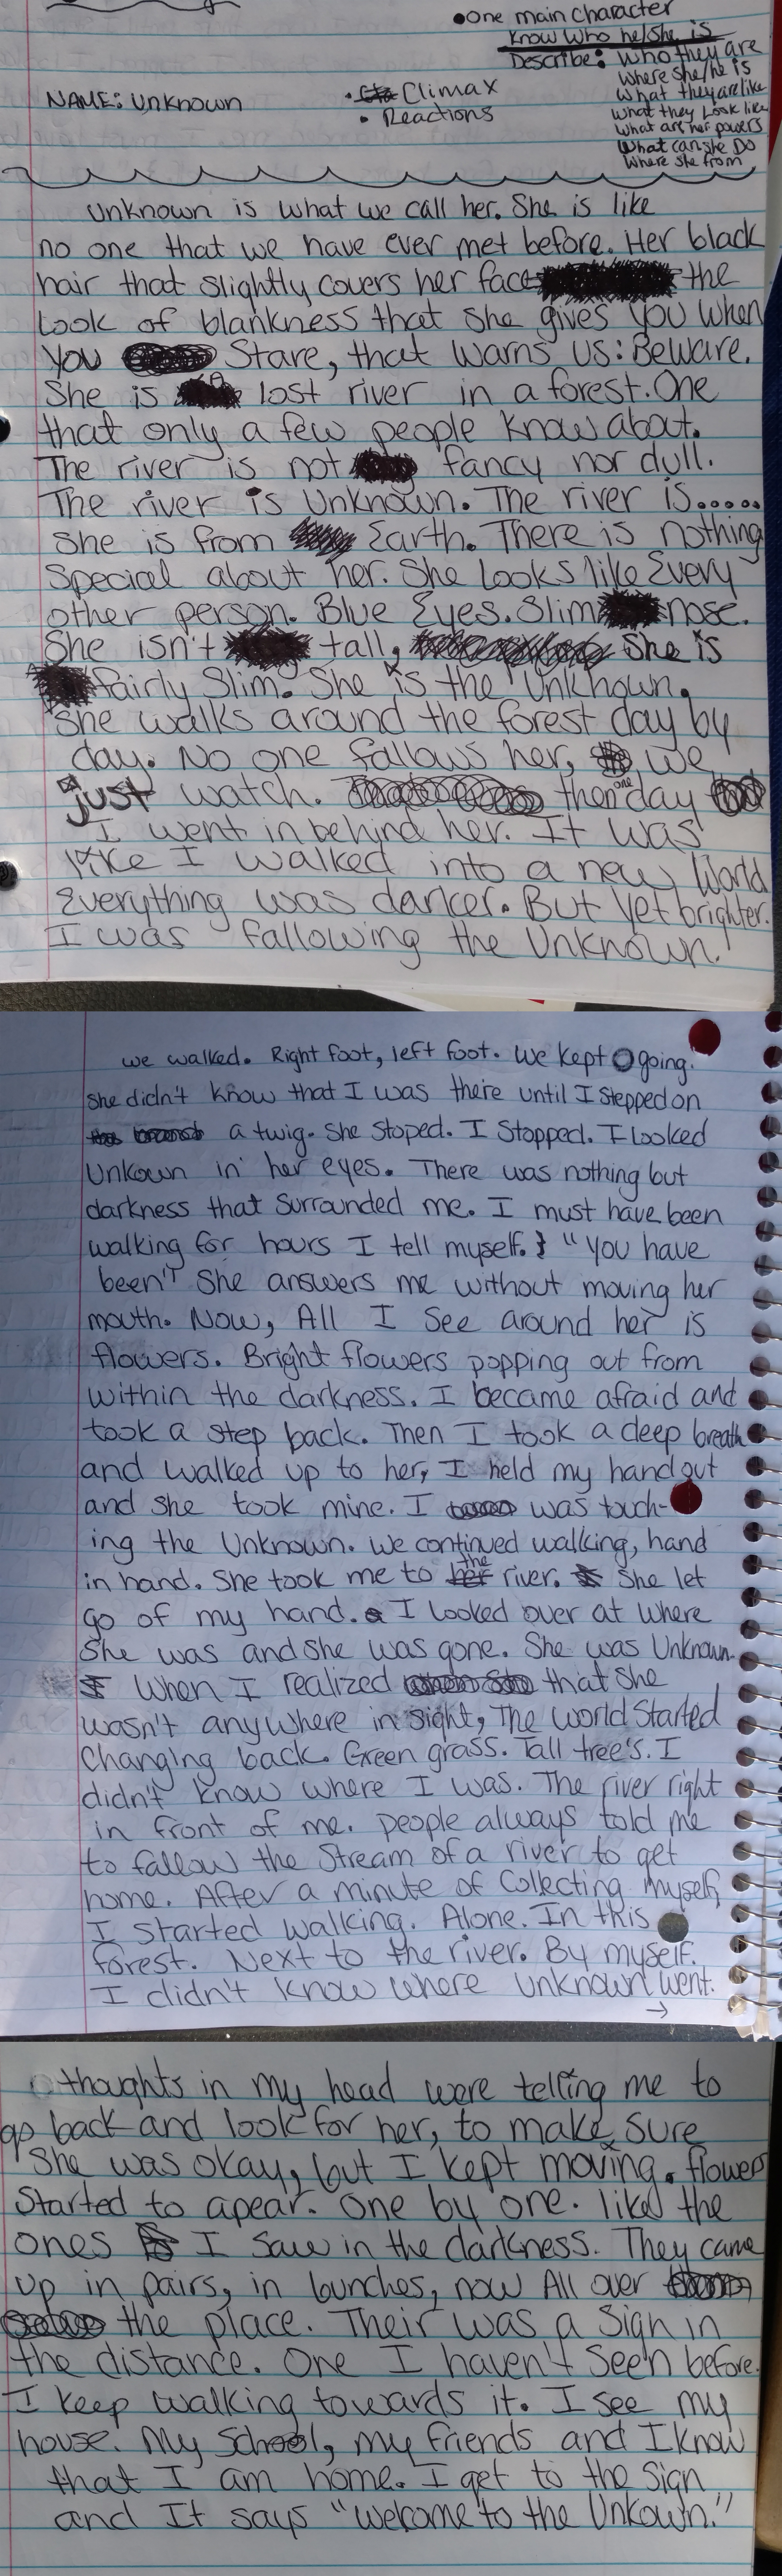 •One main character
Know Who he/she is
Describe: Who they are
Where she/he is
What they are like
What they Look like
What are her powers
What can she Do
Where she from
NAME: Unknown
• Climax
• Reactions
Unknown is what we call her. She is like
no one that we have ever met before. Her black
hair that slightly covers her face the
Look of blankness that she gives you when
you Stare, that warns us: Beware.
She is lost river in a forest. One
that only a few people know about.
The river is not fancy nor dull.
The river is Unknown. The river is.....
She is from Earth. There is nothing
Special about her. She Looks like Every
other person. Blue Eyes. Slim nose.
She isn't tall, She is
fairly Slim. She is the Unknown.
She walks around the forest day by
day. No one fallows her, we
just watch. then one day
I went in behind her. It was
like I walked into a new World
Everything was darker. But yet brighter.
I was fallowing the Unknown.
we walked. Right foot, left foot. We kept going.
she didn't know that I was there until I stepped on
a twig. She Stoped. I Stopped. I looked
Unkown in her eyes. There was nothing but
darkness that surrounded me. I must have been
walking for hours I tell myself. "You have
been" She answers me without moving her
mouth. Now, All I See around her is
flowers. Bright flowers popping out from
within the darkness. I became afraid and
took a step back. Then I took a deep breath
and walked up to her, I held my hand out
and she took mine. I was touch-
ing the Unknown. We continued walking, hand
in hand. She took me to the river. She let
go of my hand. I looked over at where
She was and she was gone. She was Unknown.
When I realized that she
wasn't anywhere in sight, The world started
Changing back. Green grass. Tall tree's. I
didn't know where I was. The river right
in front of me. people always told me
to fallow the Stream of a river to get
home. After a minute of Collecting myself,
I Started walking. Alone. In this
forest. Next to the river. By myself.
I didn't know where Unknown went.
→
thoughts in my head were telling me to
go back and look for her, to make sure
She was okay, but I kept moving. flowers
Started to apear. One by one. like the
ones I saw in the darkness. They came
up in pairs, in bunches, now All over
the place. Their was a Sign in
the distance. One I haven't Seen before.
I keep walking towards it. I see my
house. My School, my friends and I know
that I am home. I get to the Sign
and It says "Welcome to the Unkown."